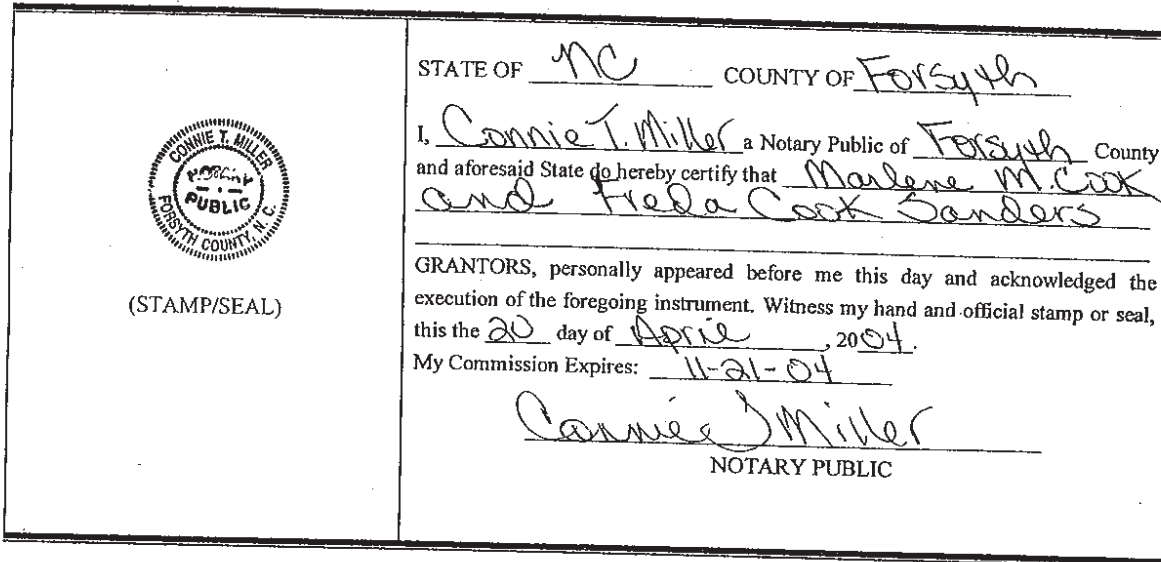 CONNIE T. MILLER
NOTARY
PUBLIC
FORSYTH COUNTY, N. C.
(STAMP/SEAL)
STATE OF NC COUNTY OF Forsyth
I, Connie T. Miller a Notary Public of Forsyth County
and aforesaid State do hereby certify that Marlene M. Cook
and Freda Cook Sanders
GRANTORS, personally appeared before me this day and acknowledged the
execution of the foregoing instrument. Witness my hand and official stamp or seal,
this the 20 day of April, 2004.
My Commission Expires: 11-21-04
Connie T Miller
NOTARY PUBLIC